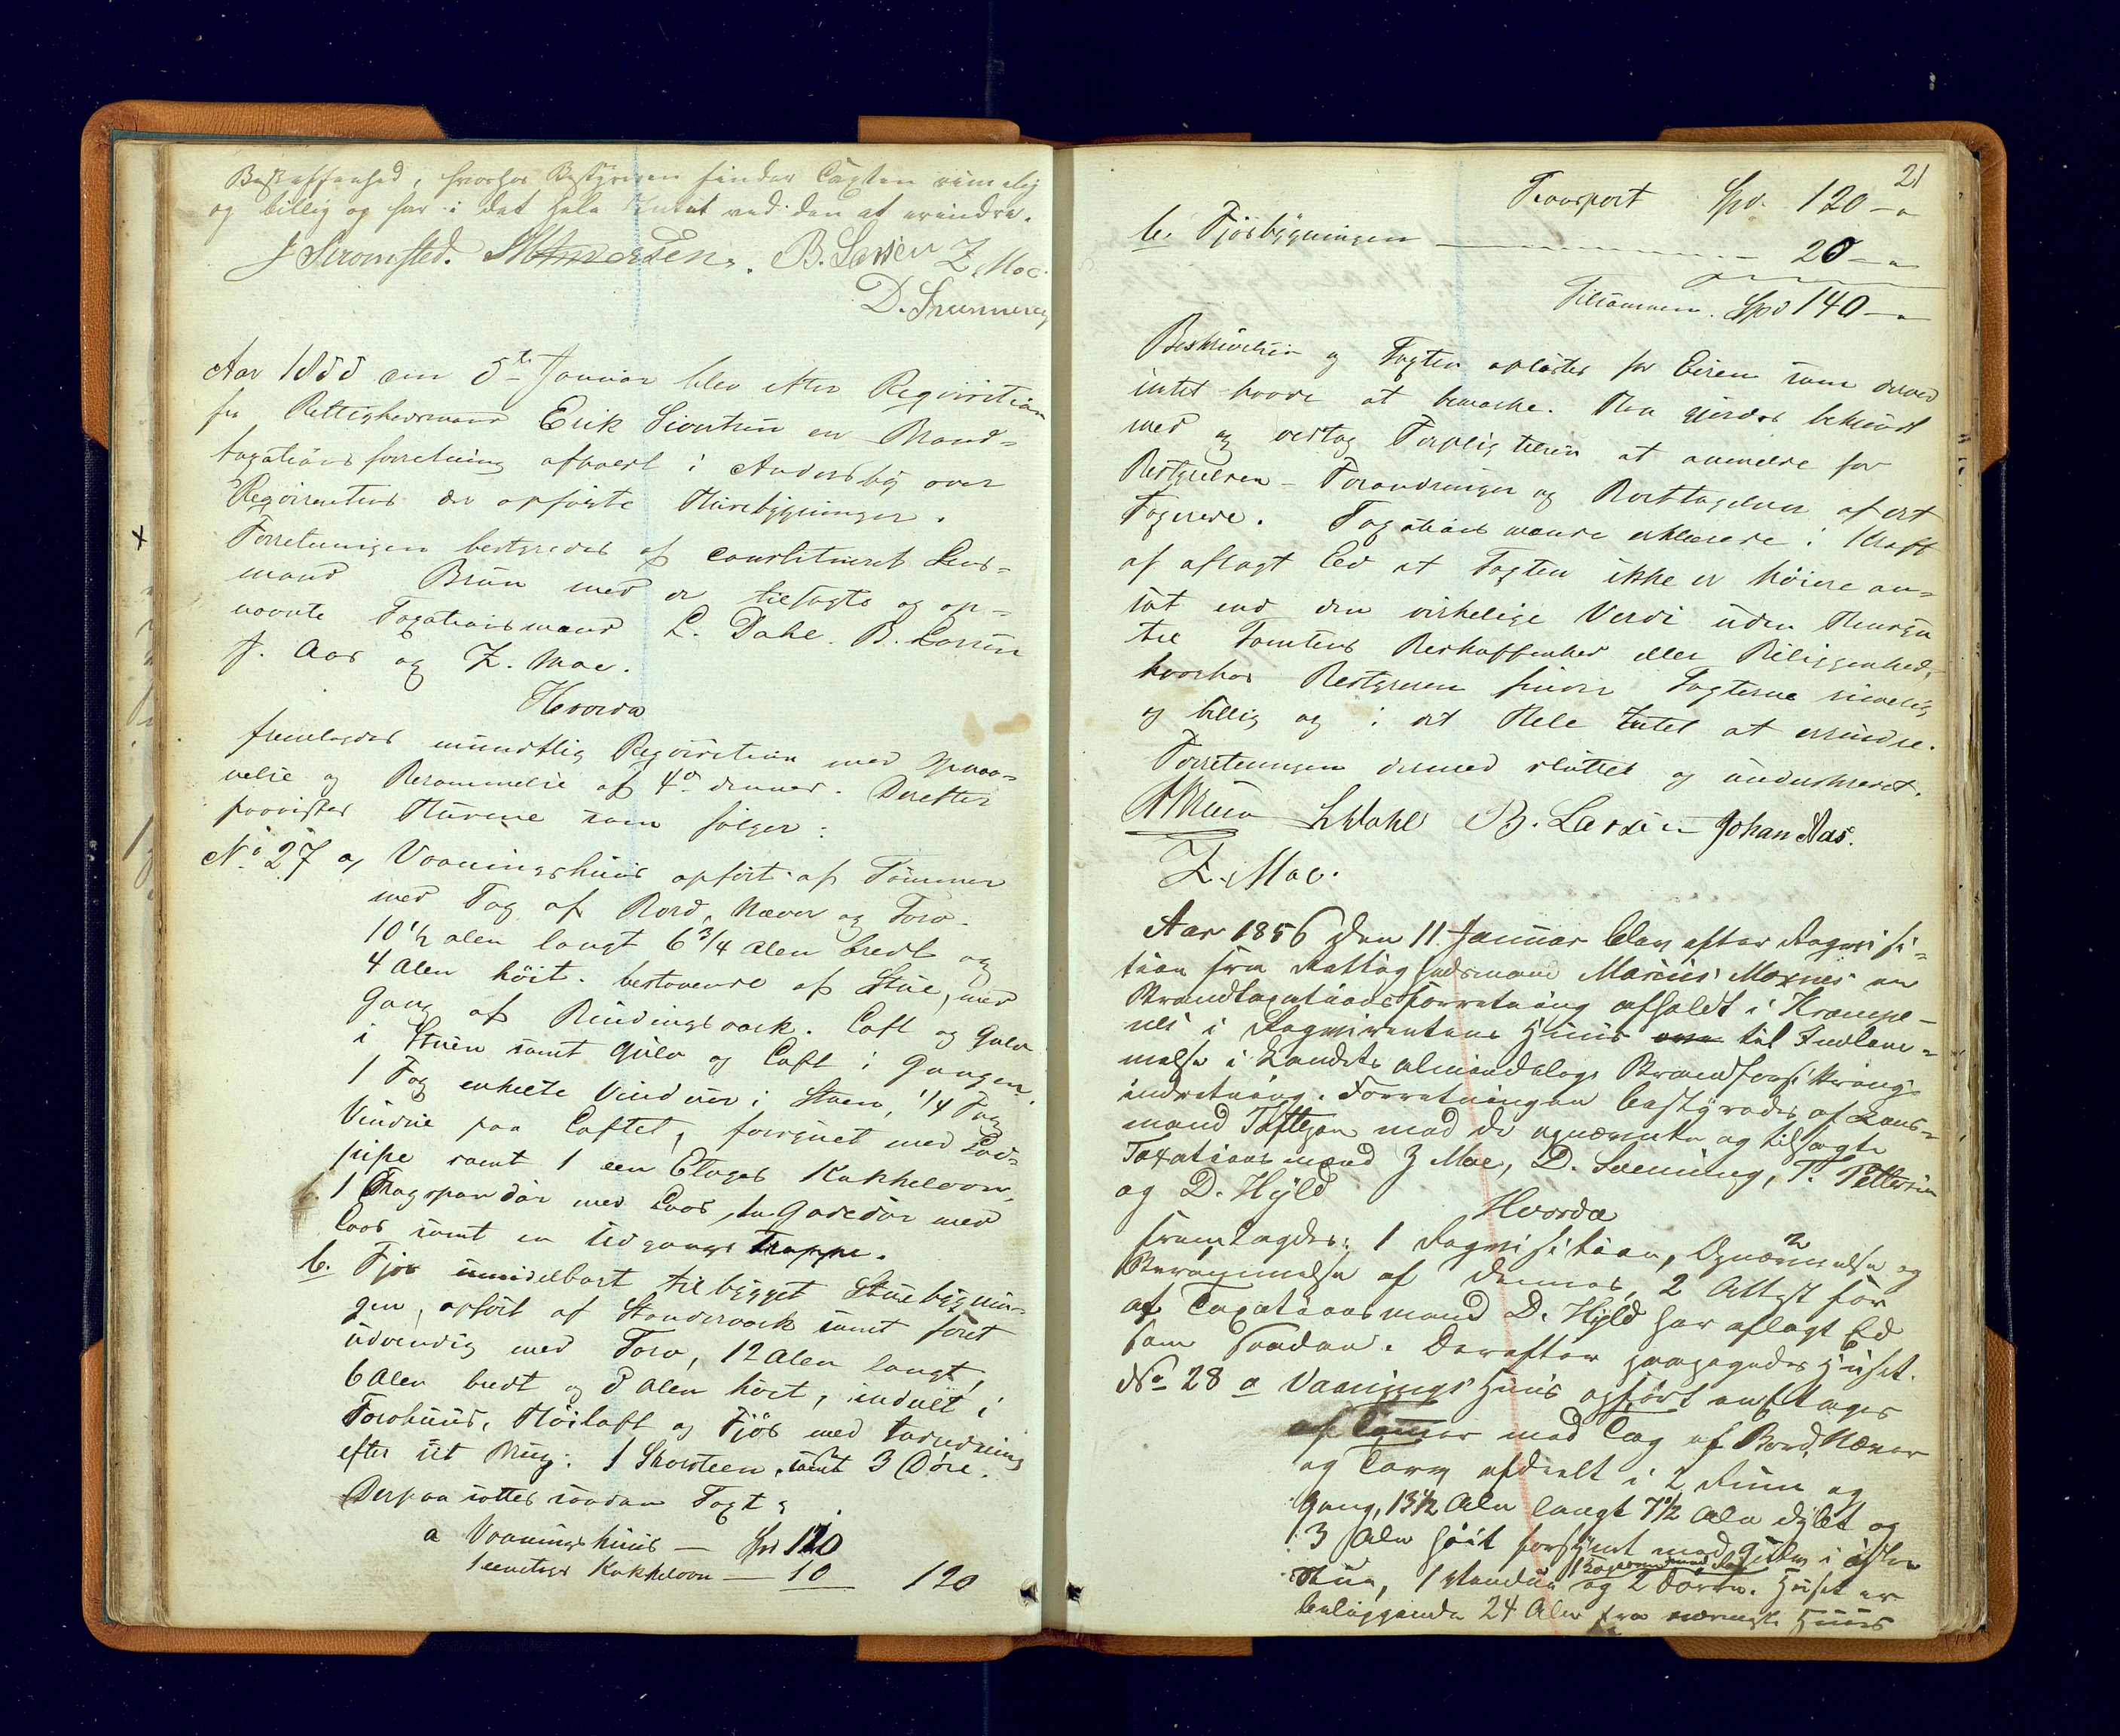 Beskaffenhed, hvorhos Bestyreren finder Taxten rimelig
og billig og har i det hele Intet ved den at erindre.
J Stromsted. Andersen. B. Larsen Z. Moe.
D.
Aar 1855 den 5te Januar blev efter Reqvisition
fra Rettighedsmand Erik Sivertsen en Brand-
taxationsforretning afholdt i Andersby over
Reqvirentens der opførte Huusbygninger.
Forretningen bestyredes af constitueret Lens-
mand Brun med de tilsagte og op-
nævnte Taxationsmænd L. Dahl. B. Larsen
J. Aas og Z. Moe.
Hvorda
fremlagdes mundtlig Reqvisition med Opnæv-
nelse og Berammelse af 4de dennes. Derefter
paavistes Husene som følger:
No 27 a, Vaaningshuus opført af Tømmer
med Tag af Bord, Næver og Torv.
10 1/2 alen langt 6 3/4 Alen bredt og
4 Alen höit. bestaaende af Stue, med
Gang af Bindingsværk. Loft og Gulv
i Stuen samt Gulv og Loft i Gangen.
1 Fag enkelte Vinduer i Stuen, 1/4 Fag
Vindue paa Loftet, forsynet med
pipe samt 1 een Etages Kakkelovn,
1 Dør med Laas, en Gadedør med
Laas samt en Udgangs Trappe.
b. Fjøs umiddelbart tilbygget Stuebygnin-
gen, opført af Standerværk samt foret
udvendig med Torv, 12 Alen langt,
6 Alen bredt og 3 Alen höit, inddeelt i
Torvhuus, Höiloft og Fjös med
et Rum; 1 Skorsteen, samt 3 Døre.
Derpaa sattes saadan Taxt:
a Vaaningshuus — Spd 110
1 eenetages Kakkelovn — 10 120
21
Transport Spd. 120 — "
b. Fjösbygningen — 20 — "
Tilsammen. Spd 140 — "
Beskrivelsen og Taxten oplæstes for Eieren som derved
intet havde at bemærke. Han gjordes bekjendt
med og vedtog Forpligtelsen at anmelde for
Bestyrelsen – Forandringer og Borttagelser af det
Taxerede. Taxationsmænd erklærede i Kraft
af aflagt Eed at Taxten ikke er höiere an-
sat end den virkelige Verdi uden Hensyn
til Tomtens Beskaffenhed eller Beliggenhed,
hvorhos Bestyreren finder Taxterne rimelig
og billig og i det Hele Intet at erindre.
Forretningen dermed sluttet og underskrevet.
Brun L Dahl B. Larsen Johan Aas.
Z. Moe.
Aar 1856 Den 11 Januar blev efter Reqvisi-
tion fra Rettighedsmand Marius Moxnes en
Brandtaxationsforretning afholdt i Krampe-
nes i Reqvirentens Huus til Indlem-
melse i Landets almindelige Brandforsikrings
indretning. Forretningen bestyredes af Lens-
mand Toftezen med de opnævnte og tilsagte
Taxationsmænd Z Moe, D. Sæming, T. Pettersen
og D. Hyld
Hvorda
fremlagdes: 1 Reqvisition, Opnævnelse og
Berammelse af dennes, 2 Attest for
at Taxationsmand D. Hyld har aflagt Ed
som saadan. Derefter Huset.
No 28 a Vaanings Huus opført
af Tømmer med Tag af Bord, Næver
og Torv afdeelt i 2 Rum og
Gang, 13 1/2 Alen langt 7 1/2 Alen dybt og
3 Alen höit forsynt med Gulv i
Stue, 1 Vindue og 2 Dörre. Huset er
beliggende 24 Alen fra nærmeste Huus